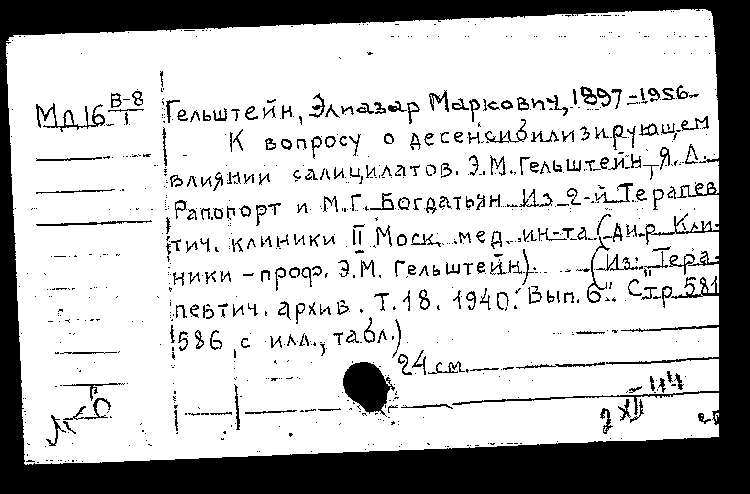 Мд 16 В-8/I
Гельштейн, Элиазар Маркович, 1897-1956
К вопросу о десенсибилизирующем
влиянии салицилатов. Э.М. Гельштейн, Я.Л.
Рапопорт и М.Г. Богдатьян Из 2-й Терапев
тич. клиники II Моск. мед. ин-та (дир. Кли-
ники - проф. Э.М. Гельштейн). (Из: "Тера-
певтич. архив. Т.18. 1940. Вып. 6". Стр 581
586 с илл., табл.)
24 см.
XII 44